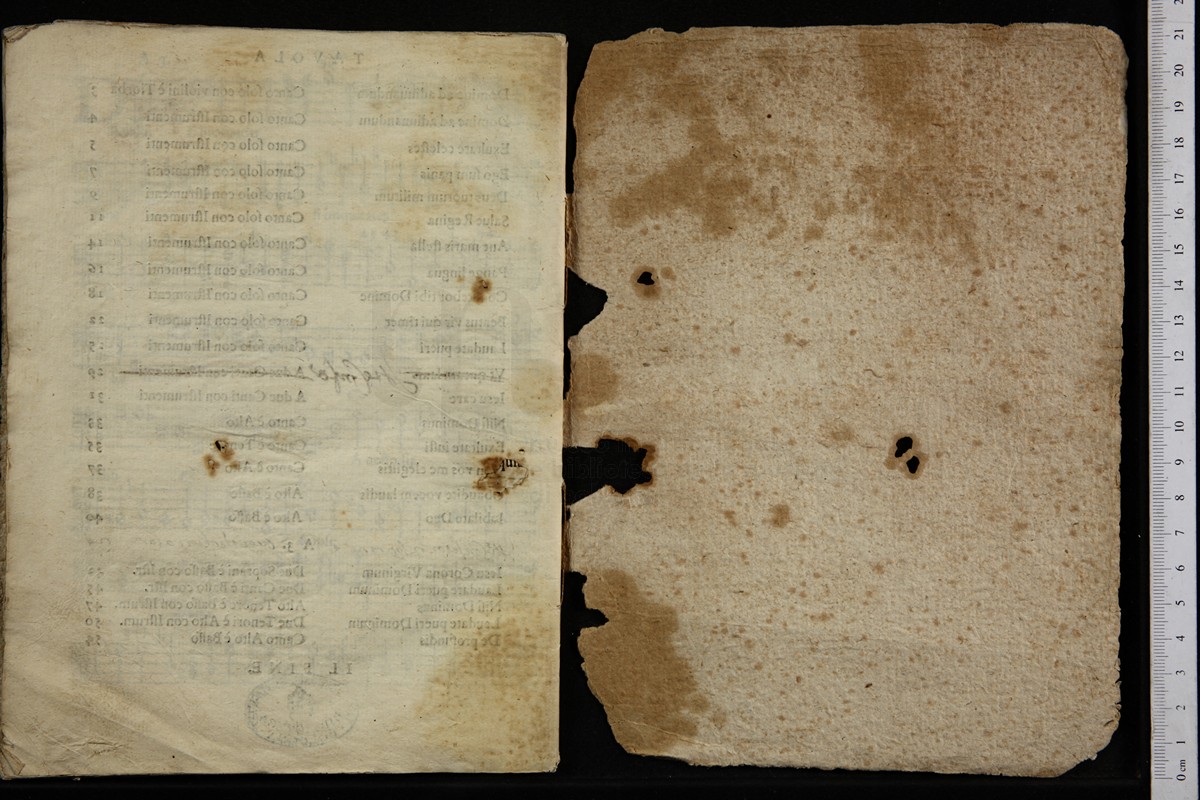 TAVOLA
Domine ad adiuuandum Canto ſolo con violini è 3
Domine ad adiuuandum Canto ſolo con Iſtrumenti 4
Exultate celeſtes Canto ſolo con Iſtrumenti 5
Ego ſum panis Canto ſolo con Iſtrumenti 7
Deus tuorum militum Canto ſolo con Iſtrumenti 9
Salue Regina Canto ſolo con Iſtrumenti 11
Aue maris ſtella Canto ſolo con Iſtrumenti 14
Pange lingua Canto ſolo con Iſtrumenti 16
tibi Domine Canto ſolo con Iſtrumenti 18
Beatus vir qui timet Canto ſolo con Iſtrumenti 22
Laudate pueri Canto ſolo con Iſtrumenti 25
A due Canti con Iſtrumenti 29
Ieſu care A due Canti con Iſtrumenti 31
Niſi Dominus Canto è Alto 33
Exultate iuſti Canto è 35
vos me elegiſtis Canto è Alto 37
vocem laudis Alto è Baſſo 38
Iubilate Deo Alto è Baſſo 40
A 3.
Ieſu Corona Virginum Due Soprani è Baſſo con Iſtr. 42
Laudate pueri Dominum Due Canti è Baſſo con Iſtr. 45
Niſi Dominus Alto Tenore è baſſo con Iſtrum. 47
Laudate pueri Dominum Due Tenori è Alto con Iſtrum. 50
De profundis Canto Alto è Baſſo 54
IL FINE
0 cm 1 2 3 4 5 6 7 8 9 10 11 12 13 14 15 16 17 18 19 20 21